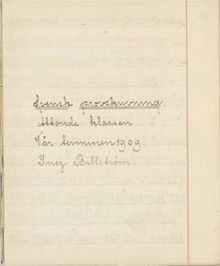 Svensk provskrivning.
Åttonde klassen
Vår-terminen 1909.
Inez Billström